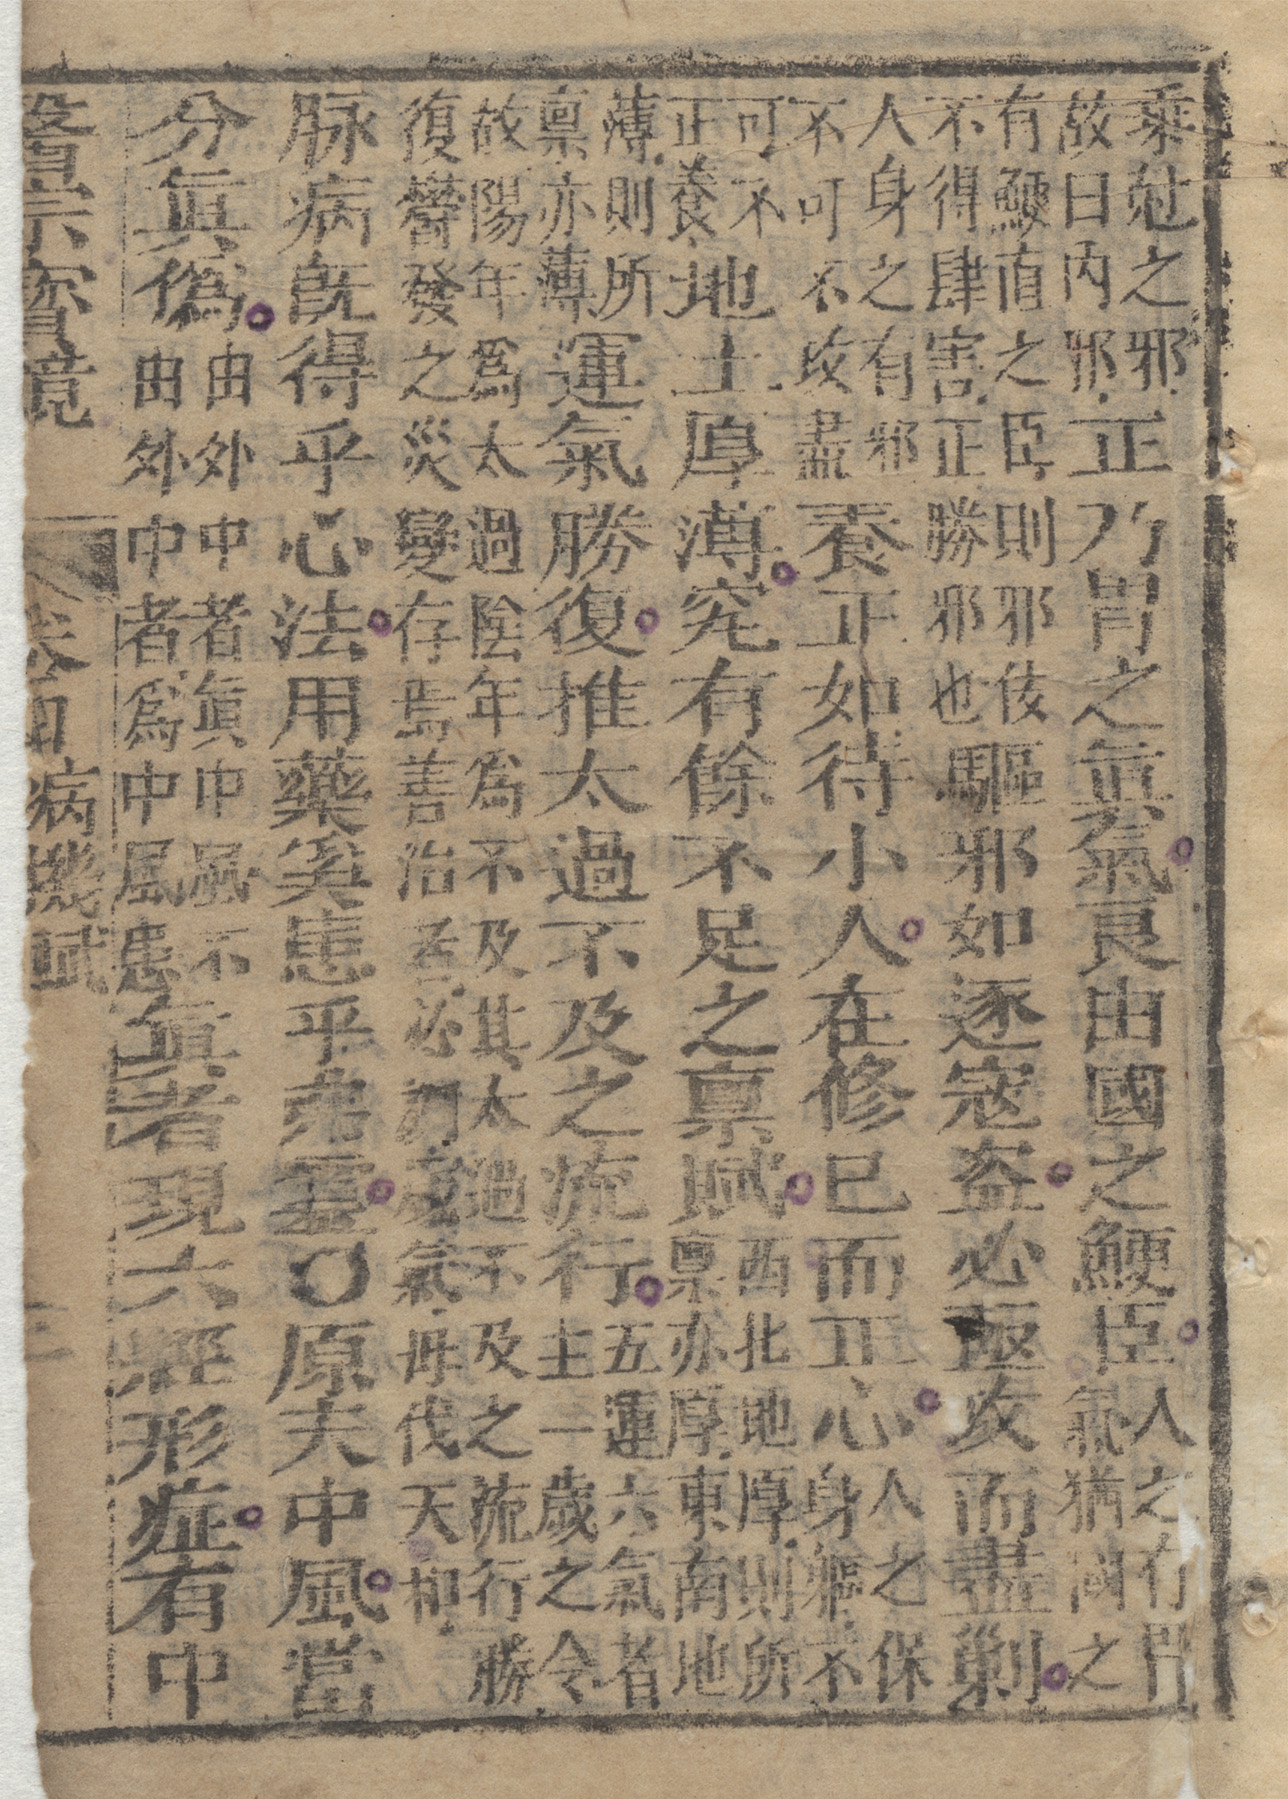 乘愆之邪
故曰內邪
正乃胃之眞氣良由國之鯁臣
人之有胃
氣猶國之
有鯁直之臣則邪伎
不得肆害正勝邪也
驅邪如逐寇盗必亟攻而盡剿
人身之有邪
不可不攻盡
養正如待小人在修已而正心
人之保
身軀不
可不
正養
地土厚薄究有餘不足之禀賦
西北地厚則所
禀亦厚東南地
薄則所
禀亦薄
運氣勝復推太過不及之流行
五運六氣者
主一歲之令
故陽年爲太過陰年爲不及其太過不及之流行勝
復鬱發之災變存焉善治者必明歲氣毋伐天和
脉病旣得乎心法用藥奚患乎弗靈〇原夫中風當
分眞偽
由外中者眞中風不
由外中者爲中風患
眞者現六經形症有中
醫宗寶鏡 卷 病機賦 三